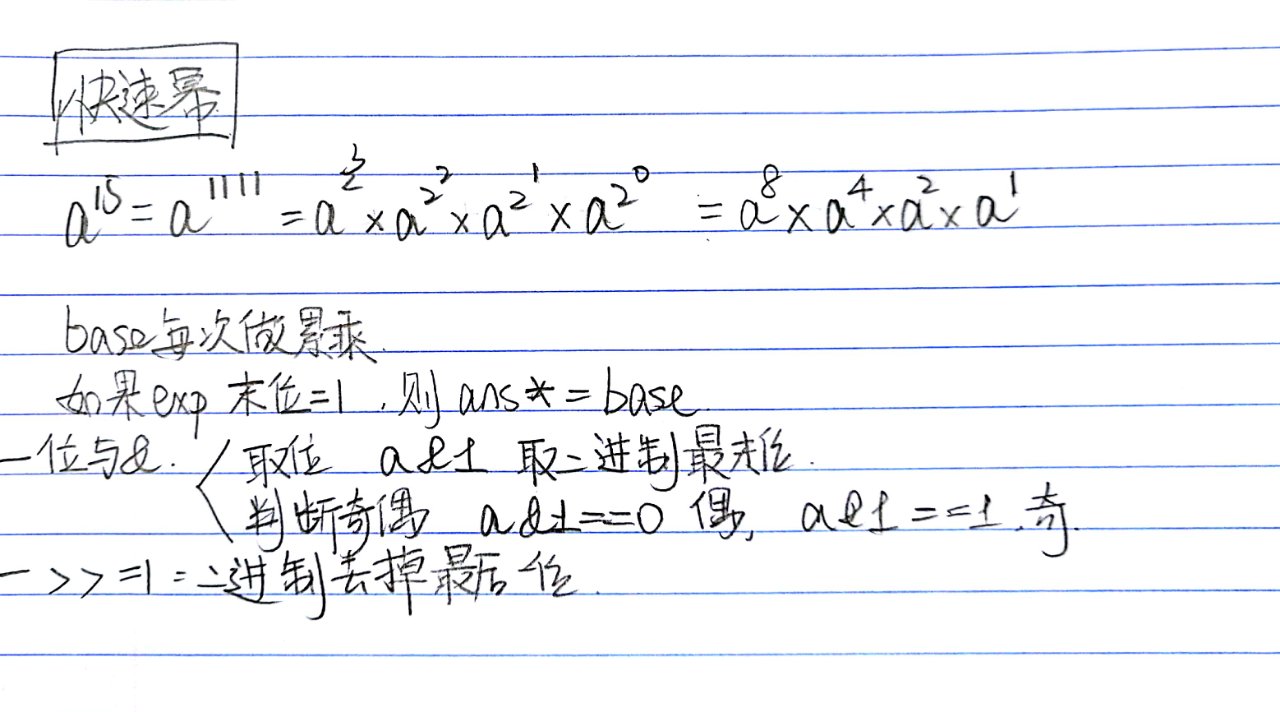 快速幂
a¹⁵ = a¹¹¹¹ = a^2^3 × a^2^2 × a^2^1 × a^2^0 = a⁸ × a⁴ × a² × a¹
base每次做累乘.
如果exp 末位=1,则 ans*=base.
-位与&. 取位 a&1 取二进制最末位.
判断奇偶 a&1==0 偶, a&1==1.奇.
- >>=1 : 二进制去掉最后一位.